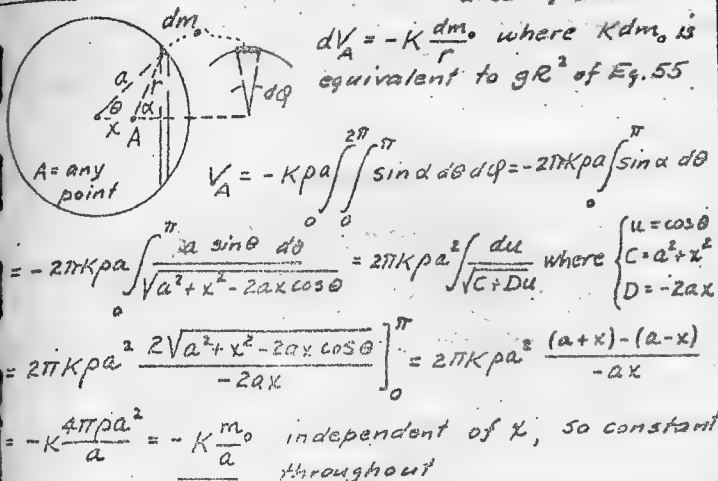 dm₀
dV_A = -K dm₀/r where Kdm₀ is
equivalent to gR² of Eq. 55
a r θ α x A dφ
A = any
point
V_A = -Kρa ∫₀^{2π} ∫₀^π sin α dθ dφ = -2πKρa ∫₀^π sin α dθ
= -2πKρa ∫₀^π a sin θ dθ / √(a² + x² - 2ax cos θ) = 2πKρa² ∫ du / √(C + Du) where { u = cos θ
C = a² + x²
D = -2ax
= 2πKρa² 2√(a² + x² - 2ax cos θ) / -2ax ]₀^π = 2πKρa² (a + x) - (a - x) / -ax
= -K 4πρa² / a = -K m₀/a independent of x, so constant
throughout